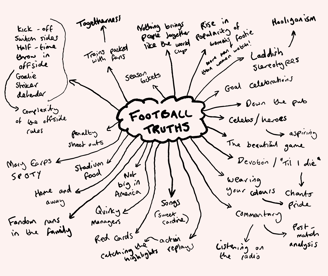 Kick-off
Switch sides
Half-time
Throw in
offside
Goalie
Striker
defender
Complexity
of the offside
rules
Togetherness!
Trains packed
with fans
Nothing brings
people together
like the world
cup
Season
tickets
Rise in
popularity of
women's football
Hooliganism
Laddish
stereotypes
Goal celebrations
Down the pub
Celebs/heroes
aspiring
The beautiful game
Devotion / "Til I die"
Chants
pride
wearing
your colours
Commentary
Post-
match
analysis
Listening on
the radio
FOOTBALL
TRUTHS
Penalty
shoot outs
Mary Earps
SPOTY
Stadium
food
Home and
away
Not
big in
America
Fandom runs
in the family
Quirky
Managers
Red Cards
Songs
(sweet
Caroline)
catching the
highlights
action
replays